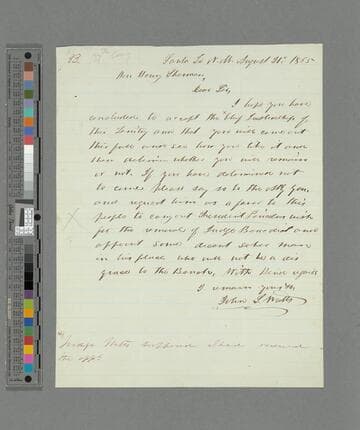 Santa Fe N. M. August 21st 1865
Mr. Henry Sherman,
Dear Sir,
I hope you have
concluded to accept the Chief Justiceship of
this Territy and that you will come out
this fall and see how you like it and
then determin whether you will remain
or not. If you have determined not
to come please say so to the Atty Gen.
and request him as a favor to this
people to carry out President Lincolns wish
for the removal of Judge Benedict and
appoint some decent sober man
in his place who will not be a dis
grace to the Bench. With kind regards
I remain yours &c
John S. Watts
Judge Watts supposed I had received
the appt